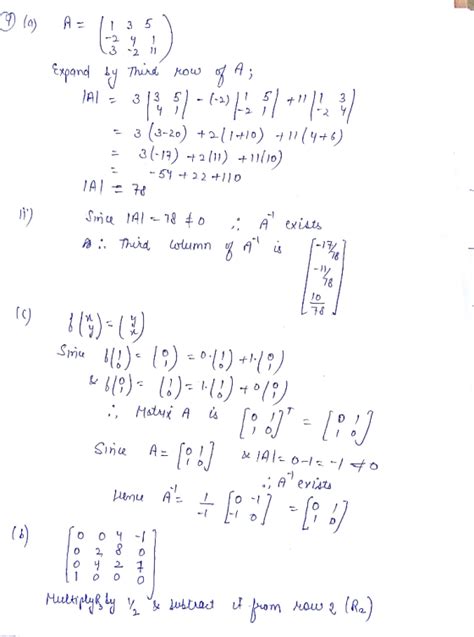 7 (a) A = (1 3 5
-2 4 1
3 -2 11)
Expand by Third row of A;
|A| = 3 |3 5 4 1| - (-2) |1 5 -2 1| + 11 |1 3 -2 4|
= 3 (3-20) + 2(1+10) + 11(4+6)
= 3(-17) + 2(11) + 11(10)
= -54 + 22 + 110
|A| = 78
ii) Since |A| = 78 ≠ 0 ∴ A⁻¹ exists
∴ Third column of A⁻¹ is [-17/78
-11/78
10/78]
(c) f(x y) = (y x)
Since f(1 0) = (0 1) = 0·(1 0) + 1·(0 1)
& f(0 1) = (1 0) = 1·(1 0) + 0(0 1)
∴ Matrix A is [0 1 1 0]ᵀ = [0 1 1 0]
Since A = [0 1 1 0] & |A| = 0-1 = -1 ≠ 0
∴ A⁻¹ exists
Hence A⁻¹ = 1/-1 [0 -1 -1 0] = [0 1 1 0]
(b) [0 0 4 -1
0 2 8 0
0 4 2 7
1 0 0 0]
Multiply by 1/2 & subtract it from row 2 (R₂)